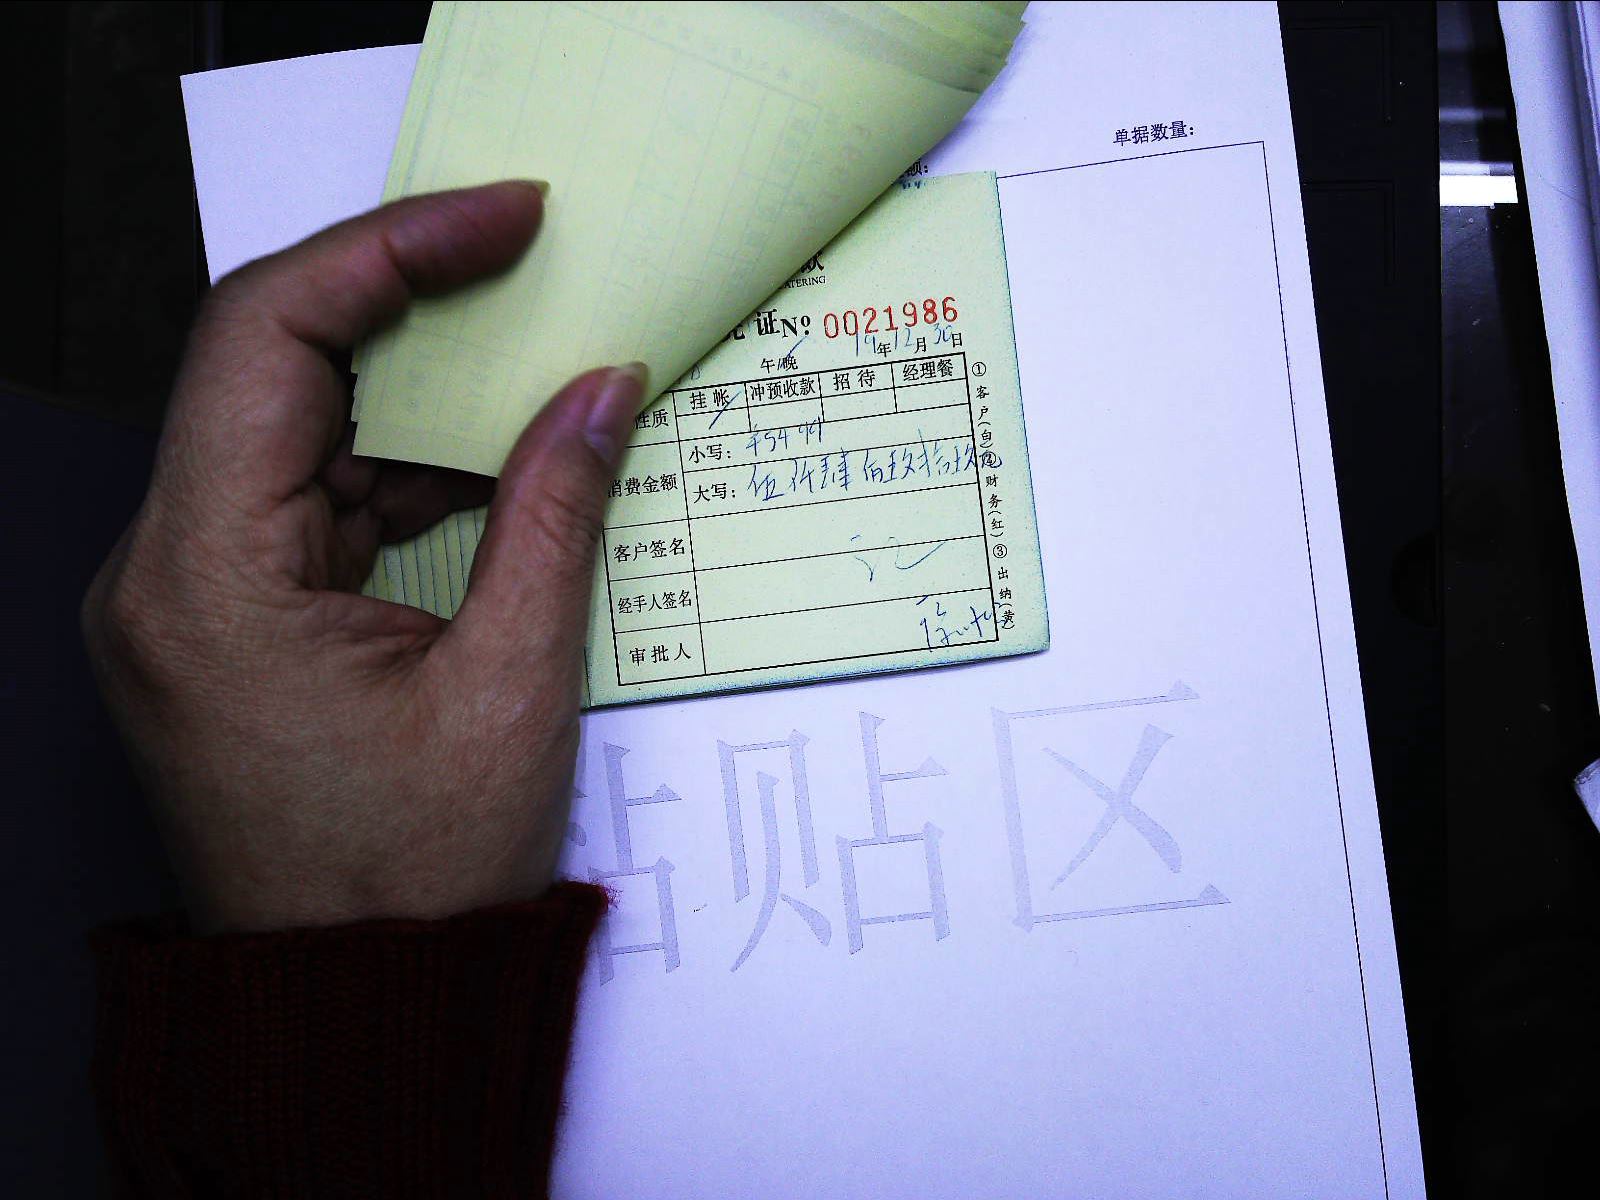 单据数量:
额:
款
CATERING
凭 证 Nº 0021986
午/晚 19年12月30日
性质 挂帐 冲预收款 招待 经理餐
消费金额 小写: ¥5499
大写: 伍仟肆佰玖拾玖元
客户签名
经手人签名
审批人
①客户(白)②财务(红)③出纳(黄)
粘贴区